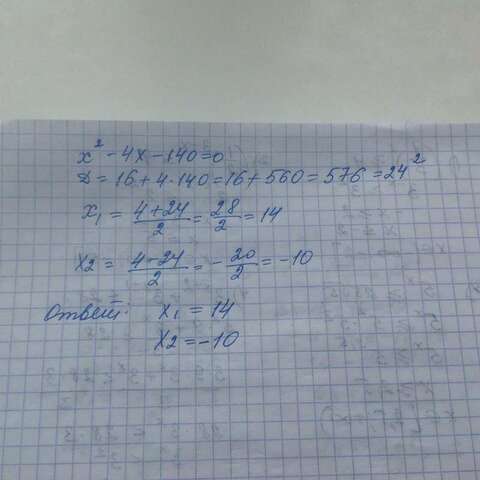 x² - 4x - 140 = 0
D = 16 + 4·140 = 16 + 560 = 576 = 24²
x₁ = (4+24)/2 = 28/2 = 14
x2 = (4-24)/2 = -20/2 = -10
Ответ: x₁ = 14
x2 = -10